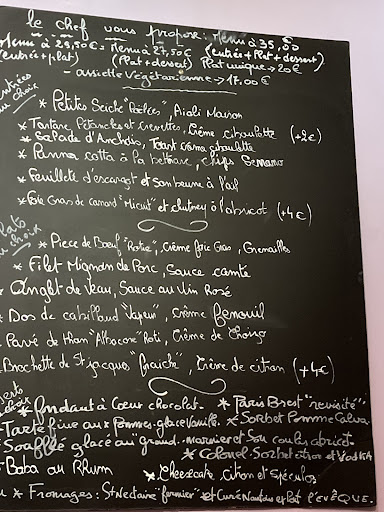 le chef vous propose : Menu à 35,00
Menu à 23,50€ = Menu 27,50€ (entrées + Plat + dessert)
(entrées + plat) (Plat + dessert) Plat unique → 20€
- assiette Végétarienne → 17,00€
Entrées
au choix
* Petites Seiche "Poêlées", Aioli Maison
* Tartare Pétoncles et crevettes, Crème ciboulette (+2€)
* Salade d'Anchois, Toast crème ciboulette
* Panna cotta à la betterave, chips
* Feuilleté d'escargot et son beurre à l'ail
* Foie Gras de canard "Micuit" et chutney à l'abricot (+4€)
Plats
au choix
* Piece de Boeuf "Rotie", Crème foie Gras, Grenailles
* Filet Mignon de Porc, Sauce comté
* Onglet de Veau, Sauce au Vin Rosé
- Dos de cabillaud "Vapeur", Crème fenouil
- Pavé de thon "Albacore" Roti, Crème de Chorizo
- Brochette de St jacques "fraiche", Crème de citron (+4€)
* fondant à Coeur chocolat. * Paris Brest "revisité"
- Tarte fine aux Pommes-glace Vanille. * Sorbet Pomme Calva.
- Soufflé glacé au grand-marnier et son coulis abricot
* Colonel Sorbet citron et Vodka
- Baba au Rhum * Cheesecake Citron et Spéculos
* Fromages : St Nectaire "fermier" et Curé Nantais et Pont l'EVÊQUE.